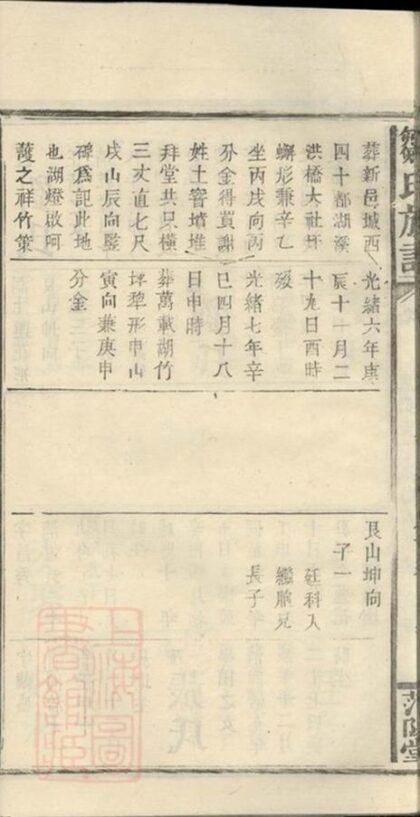 鄒氏族譜
范陽堂
葬新邑城西
四十都湖溪
洪橋大社坪
蠏形兼辛乙
坐丙戌向丙
分金得買謝
姓土窨墳堆
拜堂共只橫
三丈直七尺
戌山辰向竪
碑爲記此地
也湖燈啟呵
護之祥竹策
光緒六年庚
辰十一月二
十九日酉時
歿
光緒七年辛
巳四月十八
日申時
葬萬載湖竹
坪犂形申山
寅向兼庚申
分金
艮山坤向
子一
廷科入
繼胞兄
長子
上海圖
書館藏